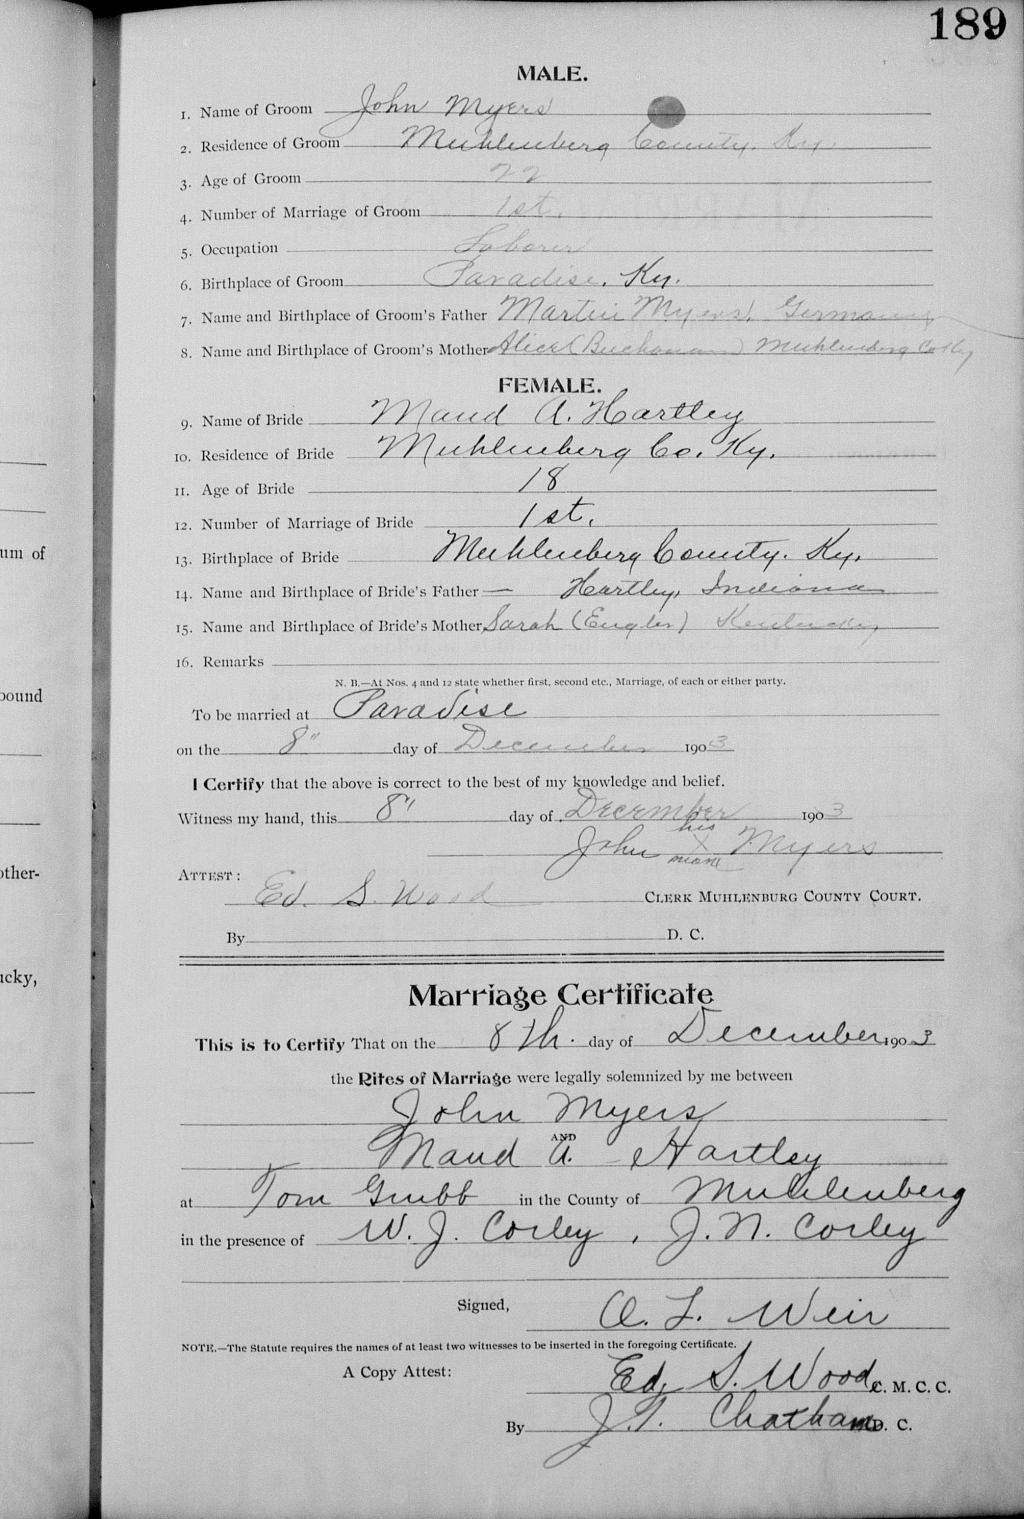 189
MALE.
1. Name of Groom John Myers
2. Residence of Groom Muhlenberg County. Ky.
3. Age of Groom 22
4. Number of Marriage of Groom 1st.
5. Occupation Laborer
6. Birthplace of Groom Paradise. Ky.
7. Name and Birthplace of Groom's Father Martin Myers. Germany
8. Name and Birthplace of Groom's Mother Alice (Buchanan) Muhlenberg Co Ky
FEMALE.
9. Name of Bride Maud A. Hartley
10. Residence of Bride Muhlenberg Co. Ky.
11. Age of Bride 18
12. Number of Marriage of Bride 1st.
13. Birthplace of Bride Muhlenberg County. Ky.
14. Name and Birthplace of Bride's Father — Hartley, Indiana
um of
15. Name and Birthplace of Bride's Mother Sarah (Engler) Kentucky
16. Remarks
N. B.—At Nos. 4 and 12 state whether first, second etc., Marriage, of each or either party.
ound
To be married at Paradise
on the 8" day of December 1903
I Certify that the above is correct to the best of my knowledge and belief.
Witness my hand, this 8" day of December 1903
his
John X Myers
mark
other-
ATTEST:
Ed. S. Wood CLERK MUHLENBURG COUNTY COURT.
By D. C.
cky,
Marriage Certificate
This is to Certify That on the 8th. day of December 1903
the Rites of Marriage were legally solemnized by me between
John Myers
AND
Maud A. Hartley
at Tom Grubb in the County of Muhlenberg
in the presence of W. J. Corley, J. N. Corley
Signed, A. L. Weir
NOTE.—The Statute requires the names of at least two witnesses to be inserted in the foregoing Certificate.
A Copy Attest: Ed. S. Wood C. M. C. C.
By J. T. Chatham D. C.